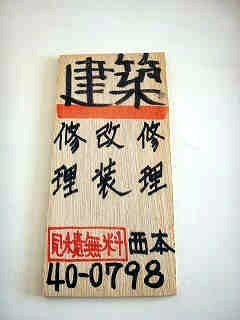 建築
修理
改装
修理
見積無料 西本
40-0798